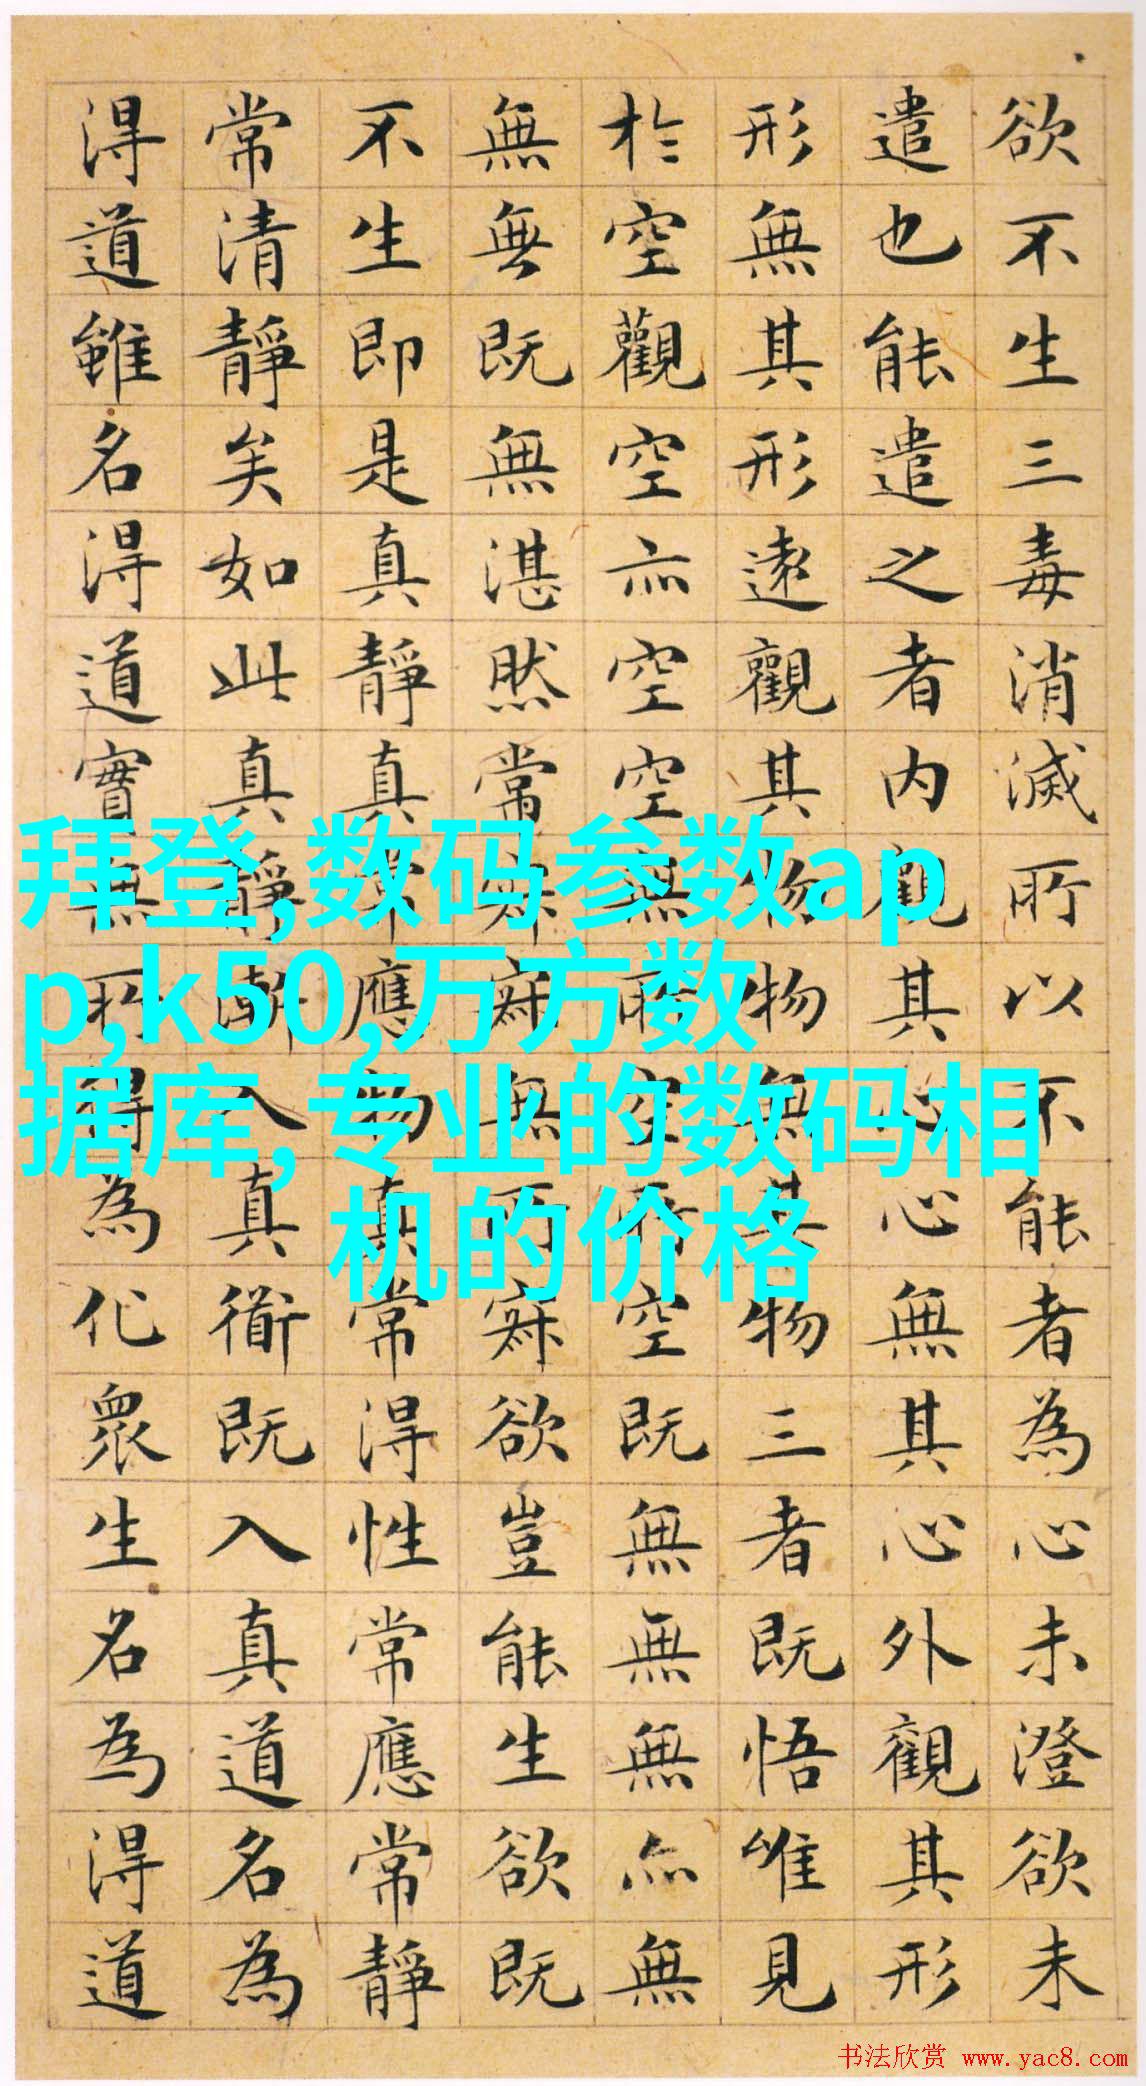 欲不生三毒消滅所以不能者為心未澄欲未
遣也能遣之者内觀其心心無其心外觀其形
形無其形遠觀其物物無其物三者既悟唯見
於空觀空亦空空無所空所空既無無無亦無
無無既無湛然常寂寂無所寂欲豈能生欲既
不生即是真靜真常應物真常得性常應常靜
常清靜矣如此真靜漸入真衟既入真道名為
得道雖名得道實無所得為化眾生名為得道
拜登,数码参数ap
p,k50,万方数
据库,专业的数码相
机的价格
书法欣赏 www.yac8.com